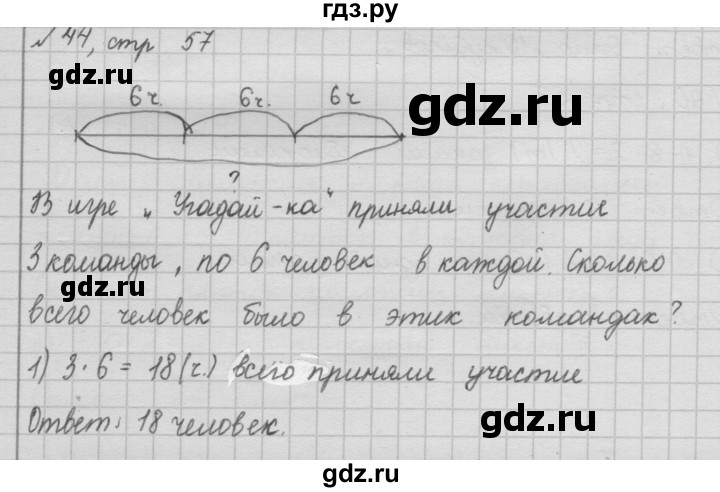 гдз.ру
№ 44, стр 57
6ч. 6ч. 6ч
gdz.ru
?
В игре „Угадай-ка" приняли участие
3 команды, по 6 человек в каждой. Сколько
всего человек было в этих командах?
1) 3 · 6 = 18 (ч.) всего приняли участие
gdz.ru
Ответ: 18 человек.
gdz.ru
gdz.ru